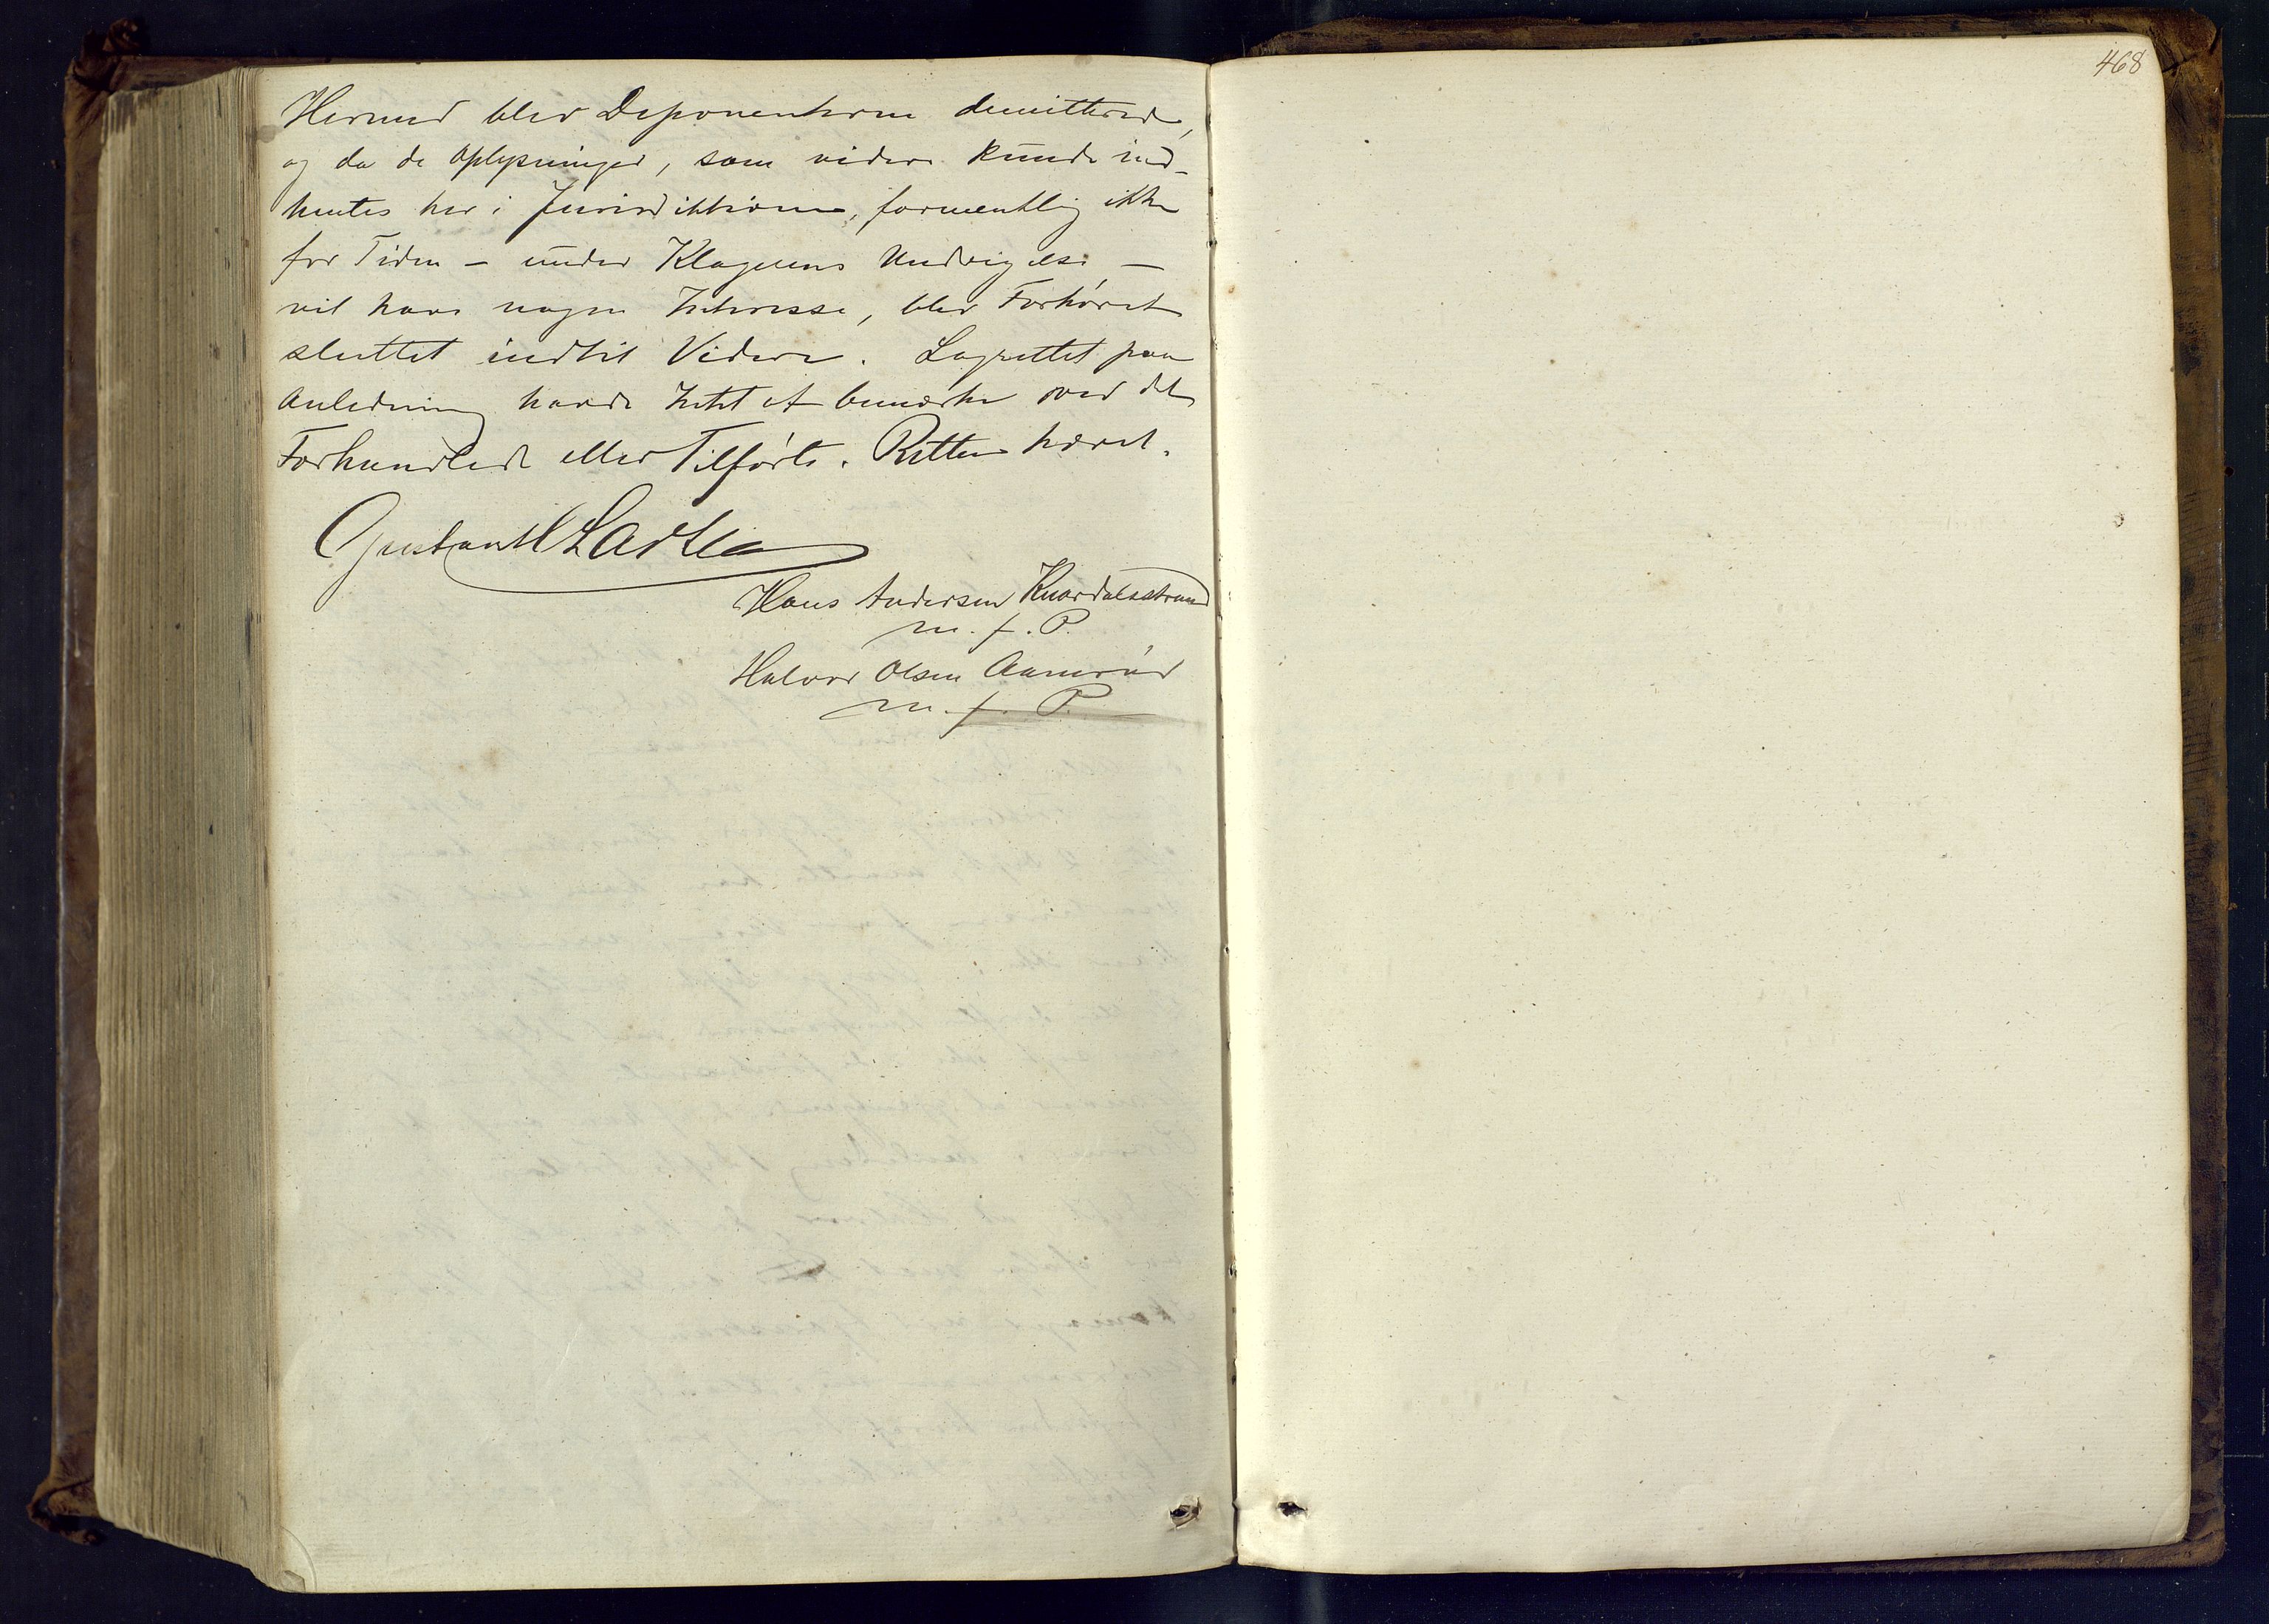 468
Hermed blev Deponenterne demitterede,
og da de Oplysninger, som videre kunde ind-
hentes her i Jurisdiktionen, formentlig ikke
for Tiden – under Klagerens Undvigelse –
vil have nogen Interesse, blev Forhøret
sluttet indtil Videre. Lagrettet paa
Anledning havde Intet at bemærke ved det
Forhandlede eller Tilførte. Retten hævet.
Hans Andersen Knardalsstrand
m. f. P.
Halvor Olsen Aamrud
m. f. P.